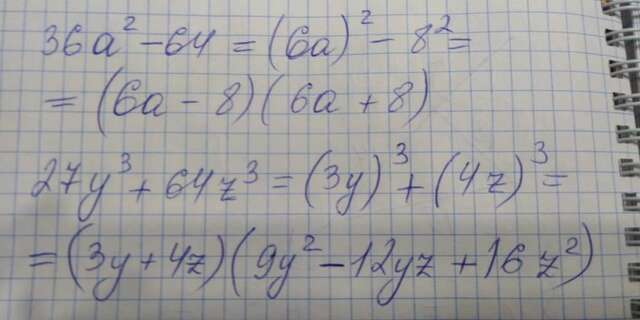 36a² − 64 = (6a)² − 8² =
= (6a − 8)(6a + 8)
27y³ + 64z³ = (3y)³ + (4z)³ =
= (3y + 4z)(9y² − 12yz + 16z²)